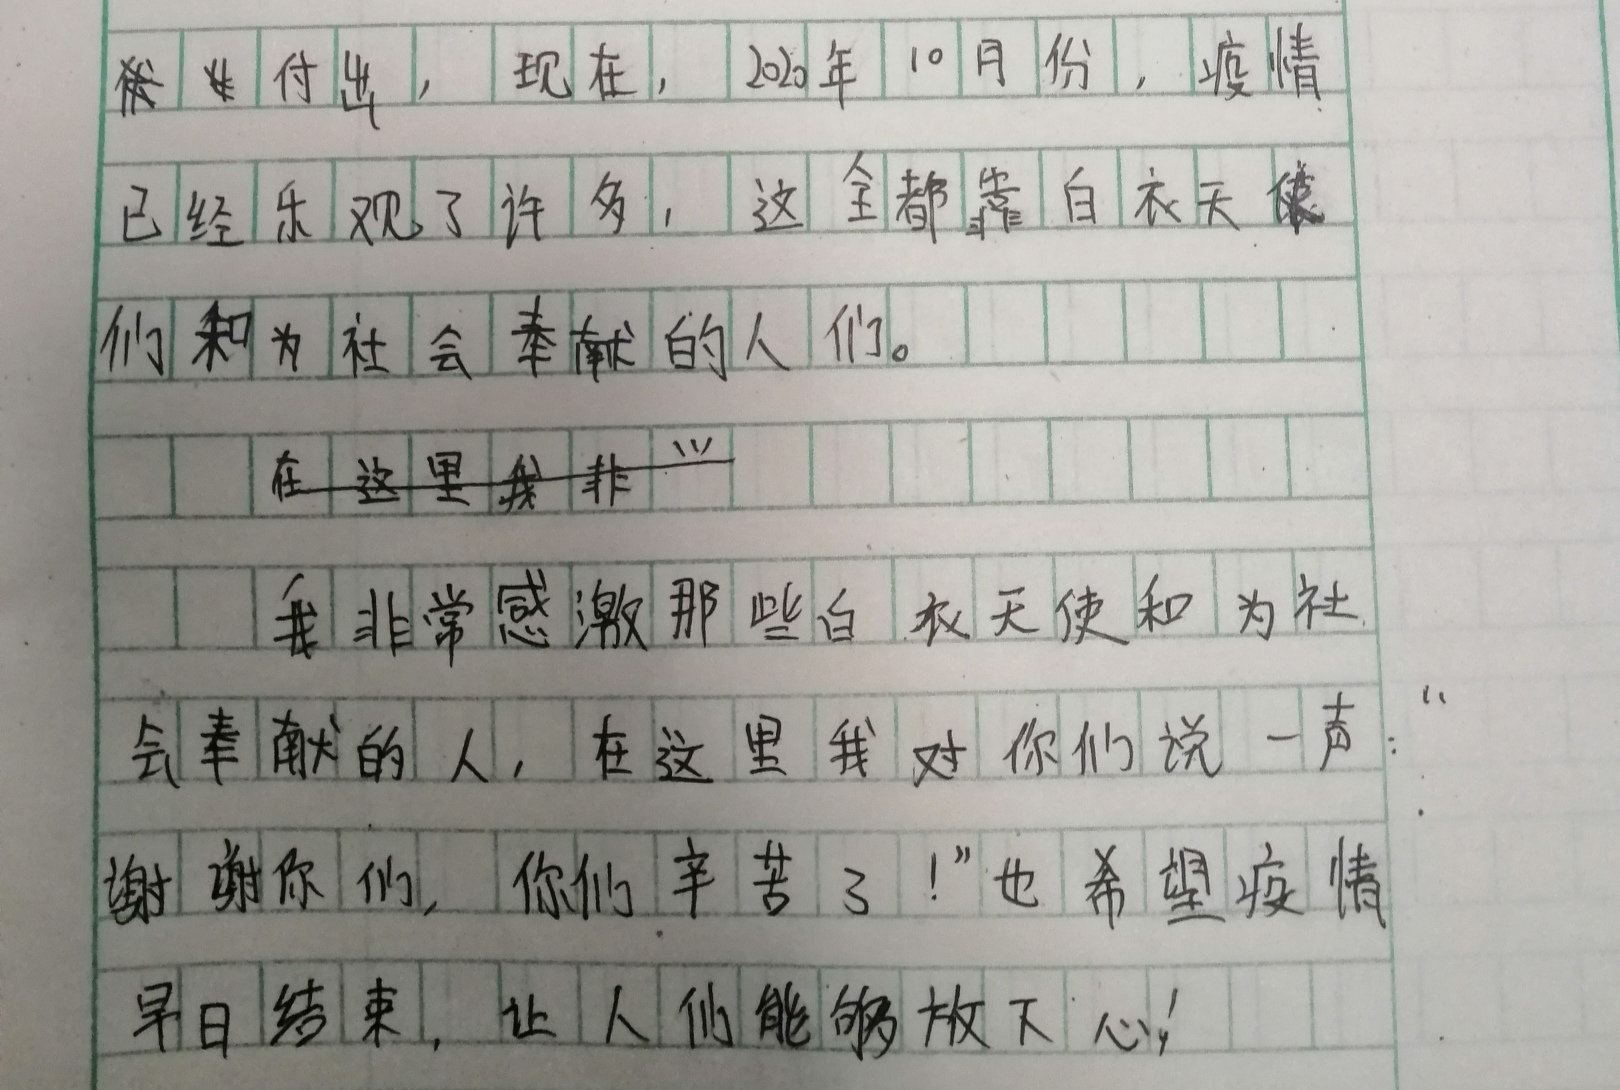 付出，现在，2020年10月份，疫情
已经乐观了许多，这全都靠白衣天使
们和为社会奉献的人们。
在这里我非
我非常感激那些白衣天使和为社
会奉献的人，在这里我对你们说一声：“
谢谢你们，你们辛苦了！”也希望疫情
早日结束，让人们能够放下心！